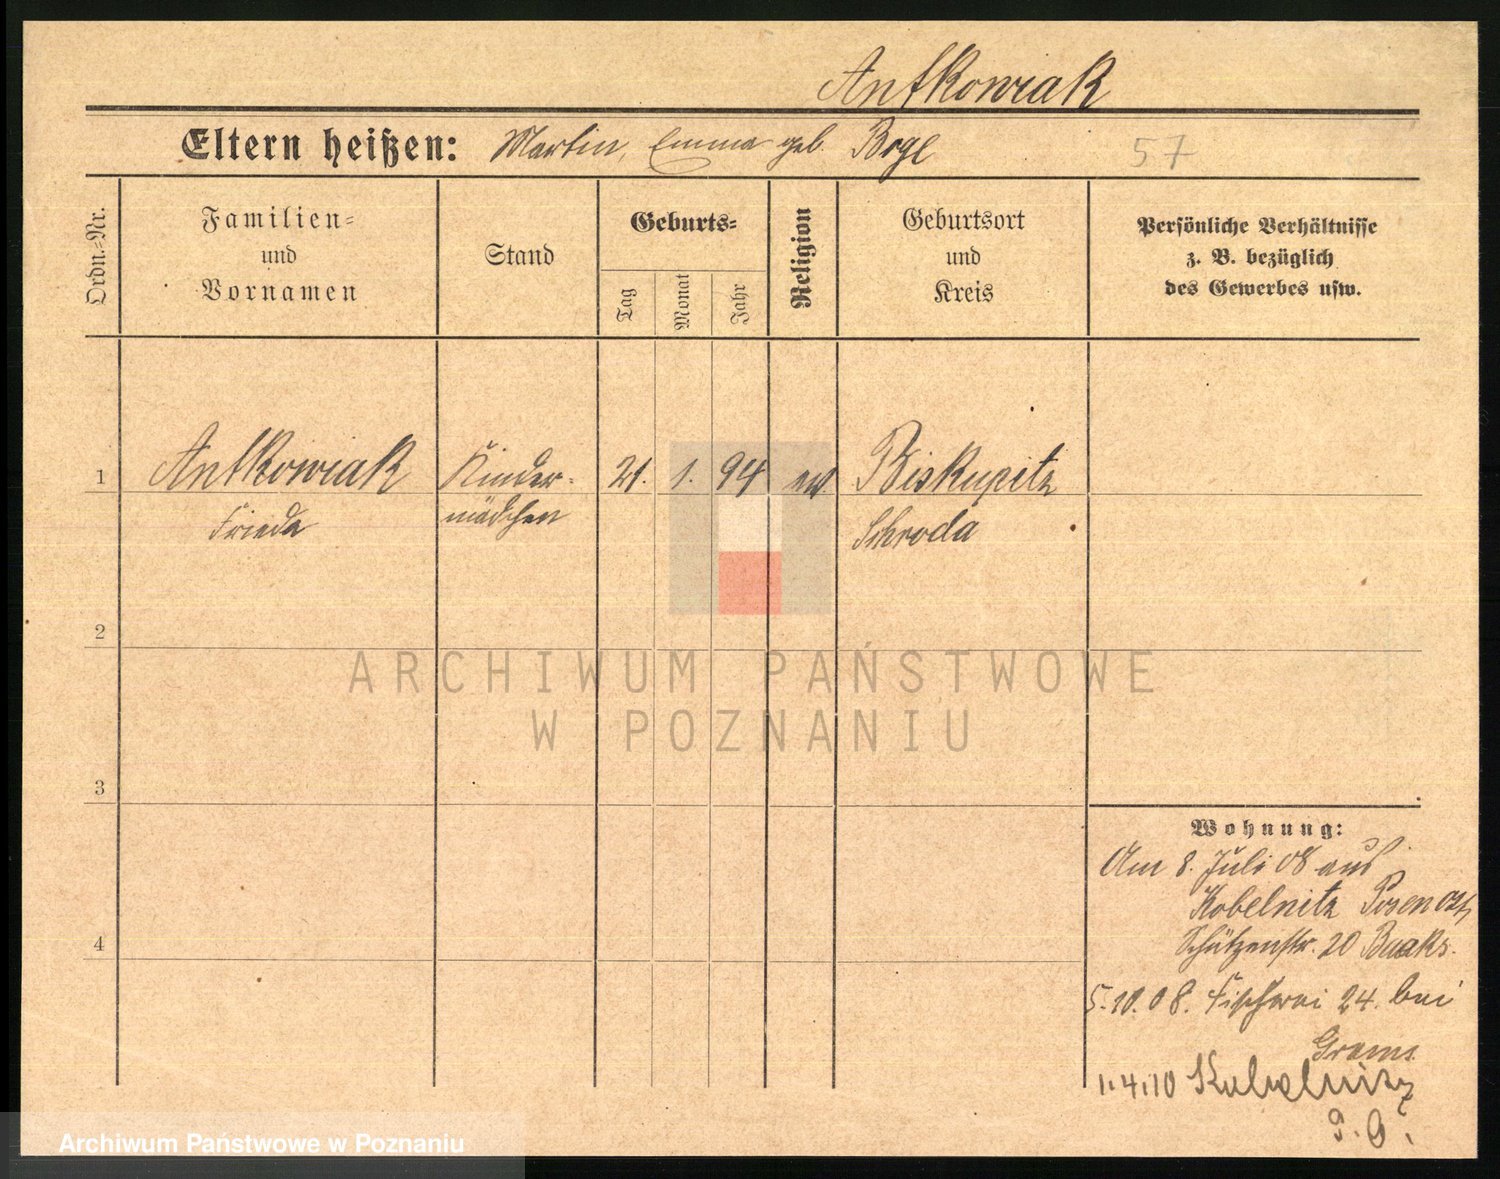 Antkowiak
Eltern heißen: Martin, Emma geb. Boge 57
Ordn.=Nr.
Familien=
und
Vornamen
Stand
Geburts=
Tag
Monat
Jahr
Religion
Geburtsort
und
Kreis
Persönliche Verhältnisse
z. B. bezüglich
des Gewerbes usw.
1 Antkowiak Kinder- 21. 1. 94 ev. Biskupitz
Frieda mädchen Schroda
2
3
4
Wohnung:
Am 8. Juli 08 aus
Kobelnitz Posen Ost,
Schützenstr. 20
5.10.08. Fischerei 24. bei
Grams
1.4.10 Kobelnitz
P. O.
ARCHIWUM PAŃSTWOWE
W POZNANIU
Archiwum Państwowe w Poznaniu